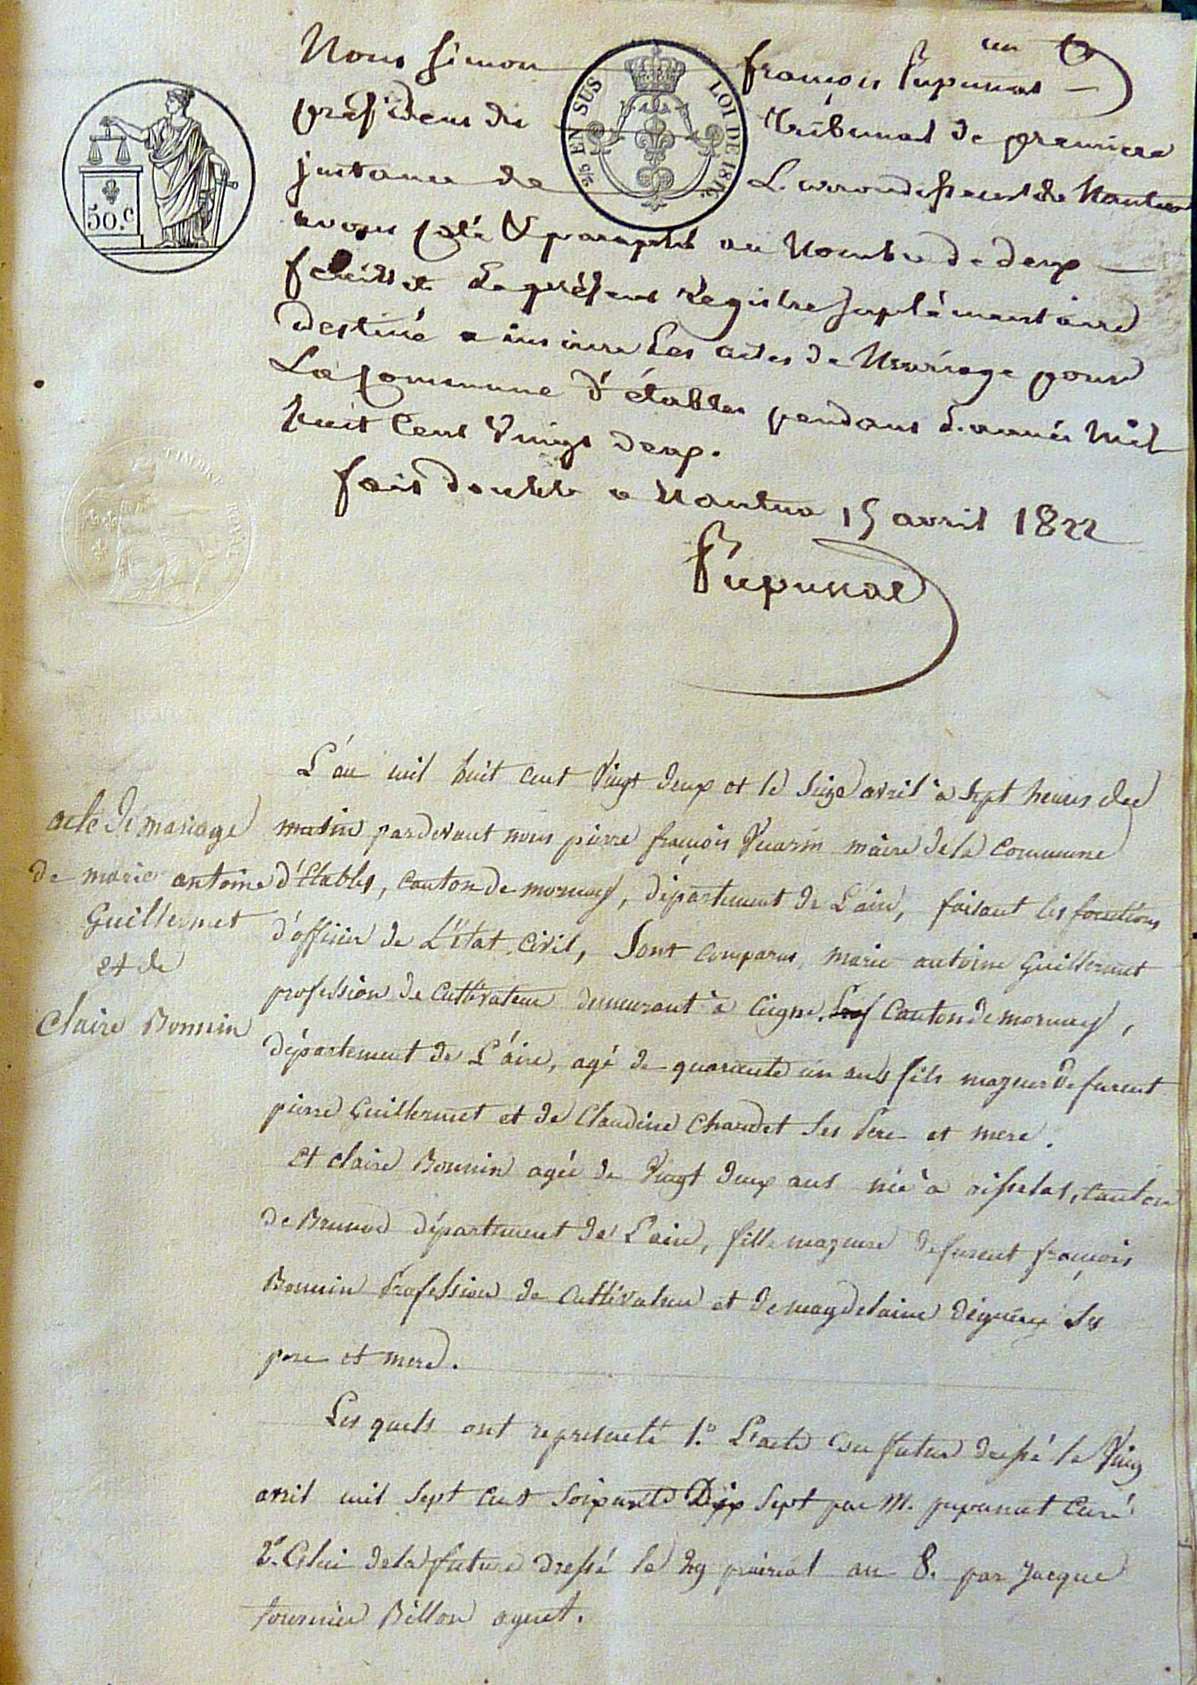 un
Nous Simon françois Pupunat
président du tribunal de premiere
instance de L'arrondissement de Nantua
avons coté & paraphé au Nombre de deux
feuillet le présent Registre suplémentaire
destiné a inscrire Les actes de Mariage pour
La Commune d'étables pendant L'année Mil
huit Cent Vingt deux.
fait double a Nantua 15 avril 1822
Pupunat
50.c
5/10 EN SUS
LOI DE 1816
TIMBRE ROYAL
L'an mil huit cent Vingt deux et le Seize avril à Sept heures du
matin pardevant nous pierre françois Vuarin maire de la Commune
d'Etables, canton de mornay, département de L'ain, faisant les fonctions
d'officier de L'état civil, Sont comparus, marie antoine Guillermet
profession de Cultivateur demeurant à Ceigne, Canton de mornay,
département de L'ain, agé de quarante un ans fils mageur de furent
pierre Guillermet et de Claudine Chardet Ses Pere et mere.
et claire Bonnin agée de Vingt deux ans née à
de Brenod département de L'ain, fille mageure de furent françois
Bonnin Profession de Cultivateur et de magdelaine Ses
pere et mere.
Les quels ont représenté 1.° L'acte du futur dressé le Vingt
avril mil Sept cent Soixante Dix Sept par M. pupunat Curé
2.° Celui de la future dressé le 29 prairial an 8. par Jacque
tournier Billon agent.
acte de mariage
de marie antoine
Guillermet
et de
Claire Bonnin